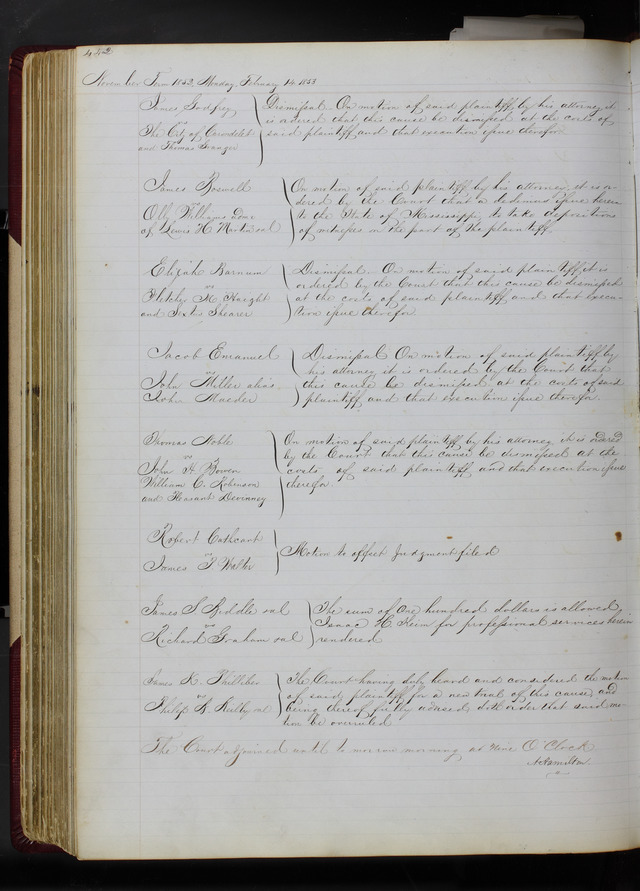 442
November Term 1852, Monday February 14, 1853
James Godfrey
vs
The City of Carondelet
and Thomas Granger
Dismissal. On motion of said plaintiff, by his attorney, it
is ordered that this cause be dismissed at the costs of
said plaintiff, and that execution issue therefor.
James Boswell
vs
Olly Williams admr
of Lewis H. Martin et al
On motion of said plaintiff by his attorney, it is or-
dered by the Court that a dedimus issue herein
to the State of Mississippi, to take depositions
of witnesses on the part of the plaintiff.
Elijah Barnum
vs
Fletcher M. Haight
and Shearer
Dismissal. On motion of said plaintiff, it is
ordered by the Court that this cause be dismissed
at the costs of said plaintiff and that execu-
tion issue therefor
Jacob Emanuel
vs
John Miller alias
John Maeder
Dismissal On motion of said plaintiff by
his attorney it is ordered by the Court that
this cause be dismissed at the costs of said
plaintiff, and that execution issue therefor.
Thomas Noble
vs
John H. Bowen
William C. Robinson
and Devinney
On motion of said plaintiff by his attorney it is ordered
by the Court that this cause be dismissed at the
costs of said plaintiff, and that execution issue
therefor.
Robert Cathcart
vs
James F Walter
Motion to offset Judgment filed
James S Riddle et al
vs
Richard Graham et al
The sum of One hundred dollars is allowed
Isaac H. Keim for professional services herein
rendered
James K. Philliber
vs
Philip A. et al
The Court having duly heard and considered the motion
of said plaintiff for a new trial of this cause, and
being thereof fully advised, doth order that said mo-
tion be overruled
The Court adjourned until to morrow morning at nine O'Clock
A Hamilton